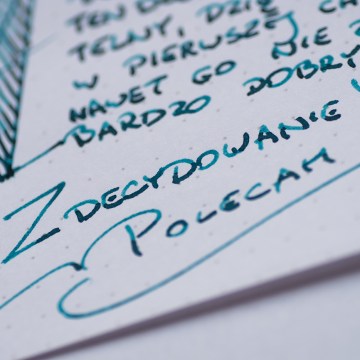 TEN
TELNY, DZIĘ
W PIERWSZEJ
NAWET GO NIE
BARDZO DOBRY
ZDECYDOWANIE
POLECAM